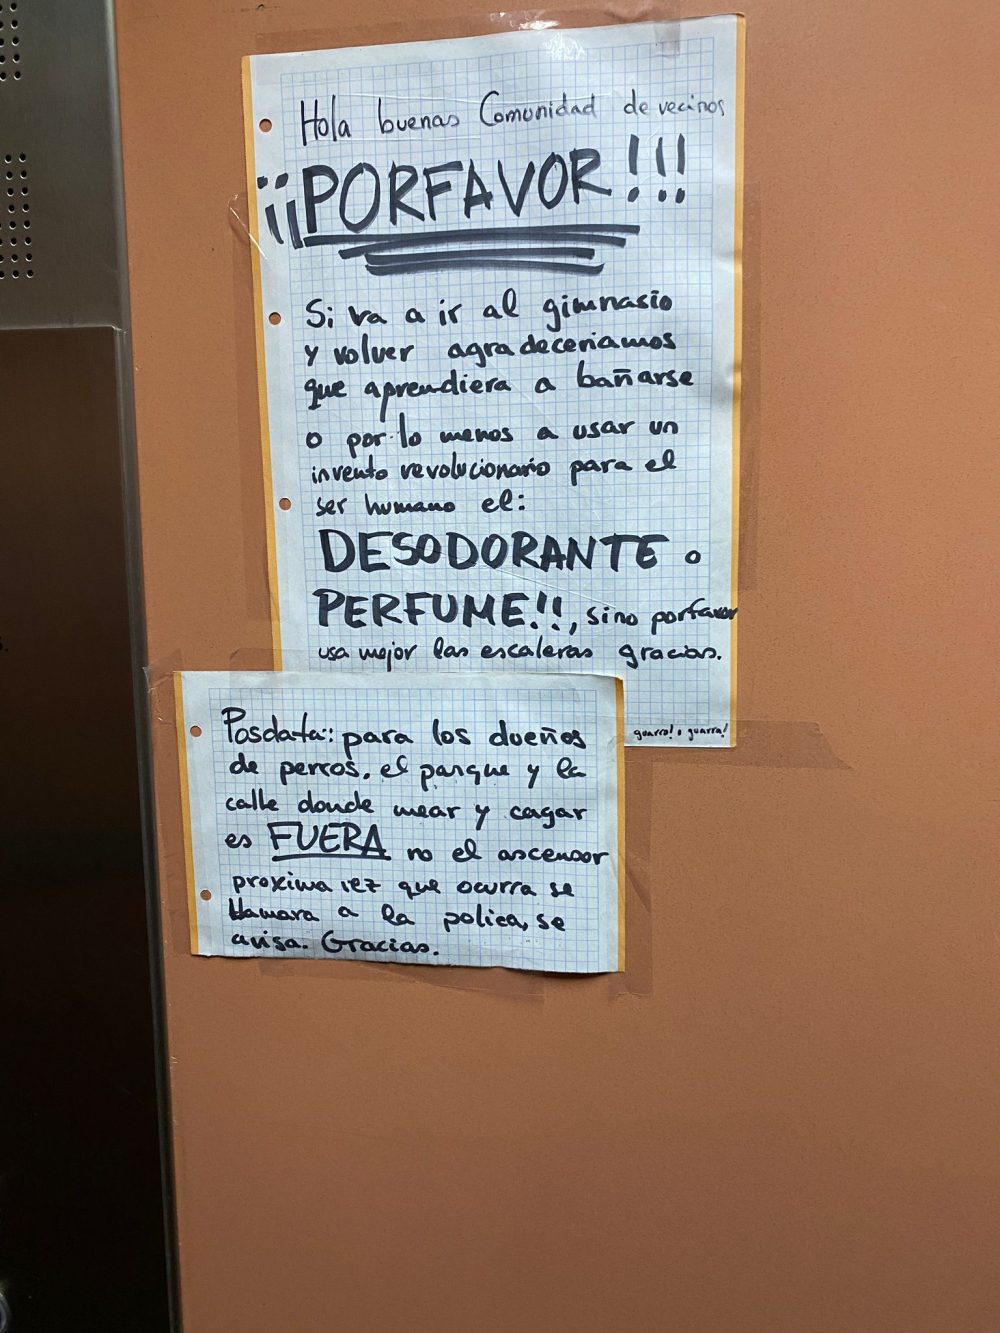 Hola buenas Comunidad de vecinos
¡¡PORFAVOR!!!
Si va a ir al gimnasio
y volver agradeceriamos
que aprendiera a bañarse
o por lo menos a usar un
invento revolucionario para el
ser humano el:
DESODORANTE o
PERFUME!!, sino porfavor
usa mejor las escaleras gracias.
guarro! o guarra!
Posdata: para los dueños
de perros, el parque y la
calle donde mear y cagar
es FUERA no el ascensor
proxima vez que ocurra se
llamara a la polica, se
avisa. Gracias.